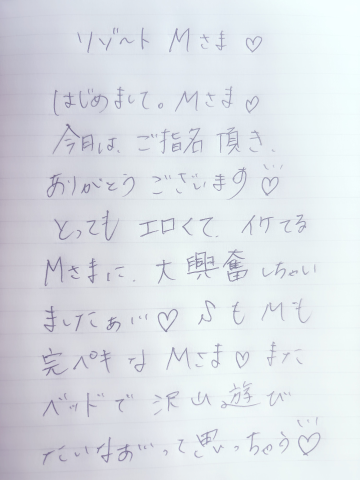 リゾート Mさま♡
はじめまして。Mさま♡
今日は、ご指名頂き、
ありがとうございます♡
とっても エロくて、イケてる
Mさまに、大興奮しちゃい
ましたぁ…♡ SもMも
完ペキな Mさま♡また
ベッドで 沢山遊び
たいなぁ…って思っちゃう♡